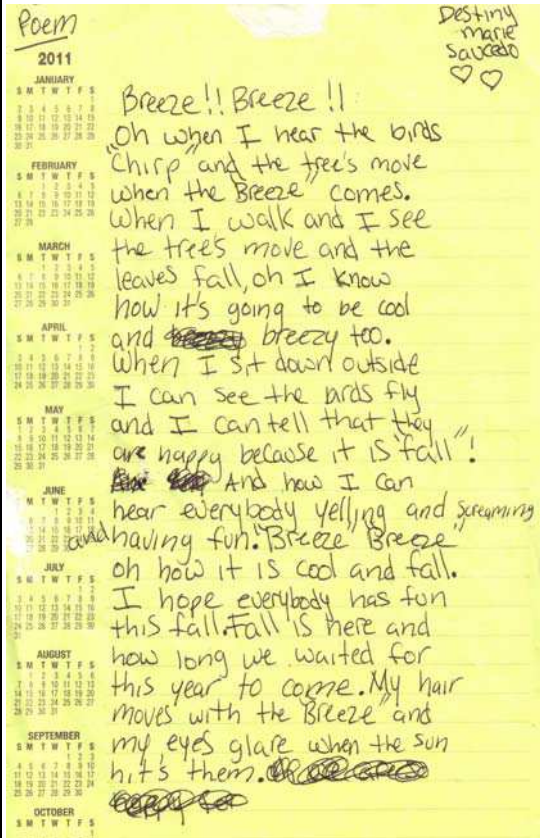 Poem
Destiny
marie
Saucedo
2011
JANUARY
S M T W T F S
FEBRUARY
S M T W T F S
MARCH
S M T W T F S
APRIL
S M T W T F S
MAY
S M T W T F S
JUNE
S M T W T F S
JULY
S M T W T F S
AUGUST
S M T W T F S
SEPTEMBER
S M T W T F S
OCTOBER
S M T W T F S
Breeze!! Breeze!!
Oh when I hear the birds
"Chirp" and the tree's move
when the "Breeze" comes.
When I walk and I see
the tree's move and the
leaves fall, oh I know
how it's going to be cool
and breezy too.
When I sit down outside
I can see the birds fly
and I can tell that they
are happy because it is "fall"!
And how I can
hear everybody yelling and screaming
and having fun. "Breeze" "Breeze"
oh how it is cool and fall.
I hope everybody has fun
this fall. Fall is here and
how long we waited for
this year to come. My hair
moves with the "Breeze" and
my eyes glare when the sun
hit's them.